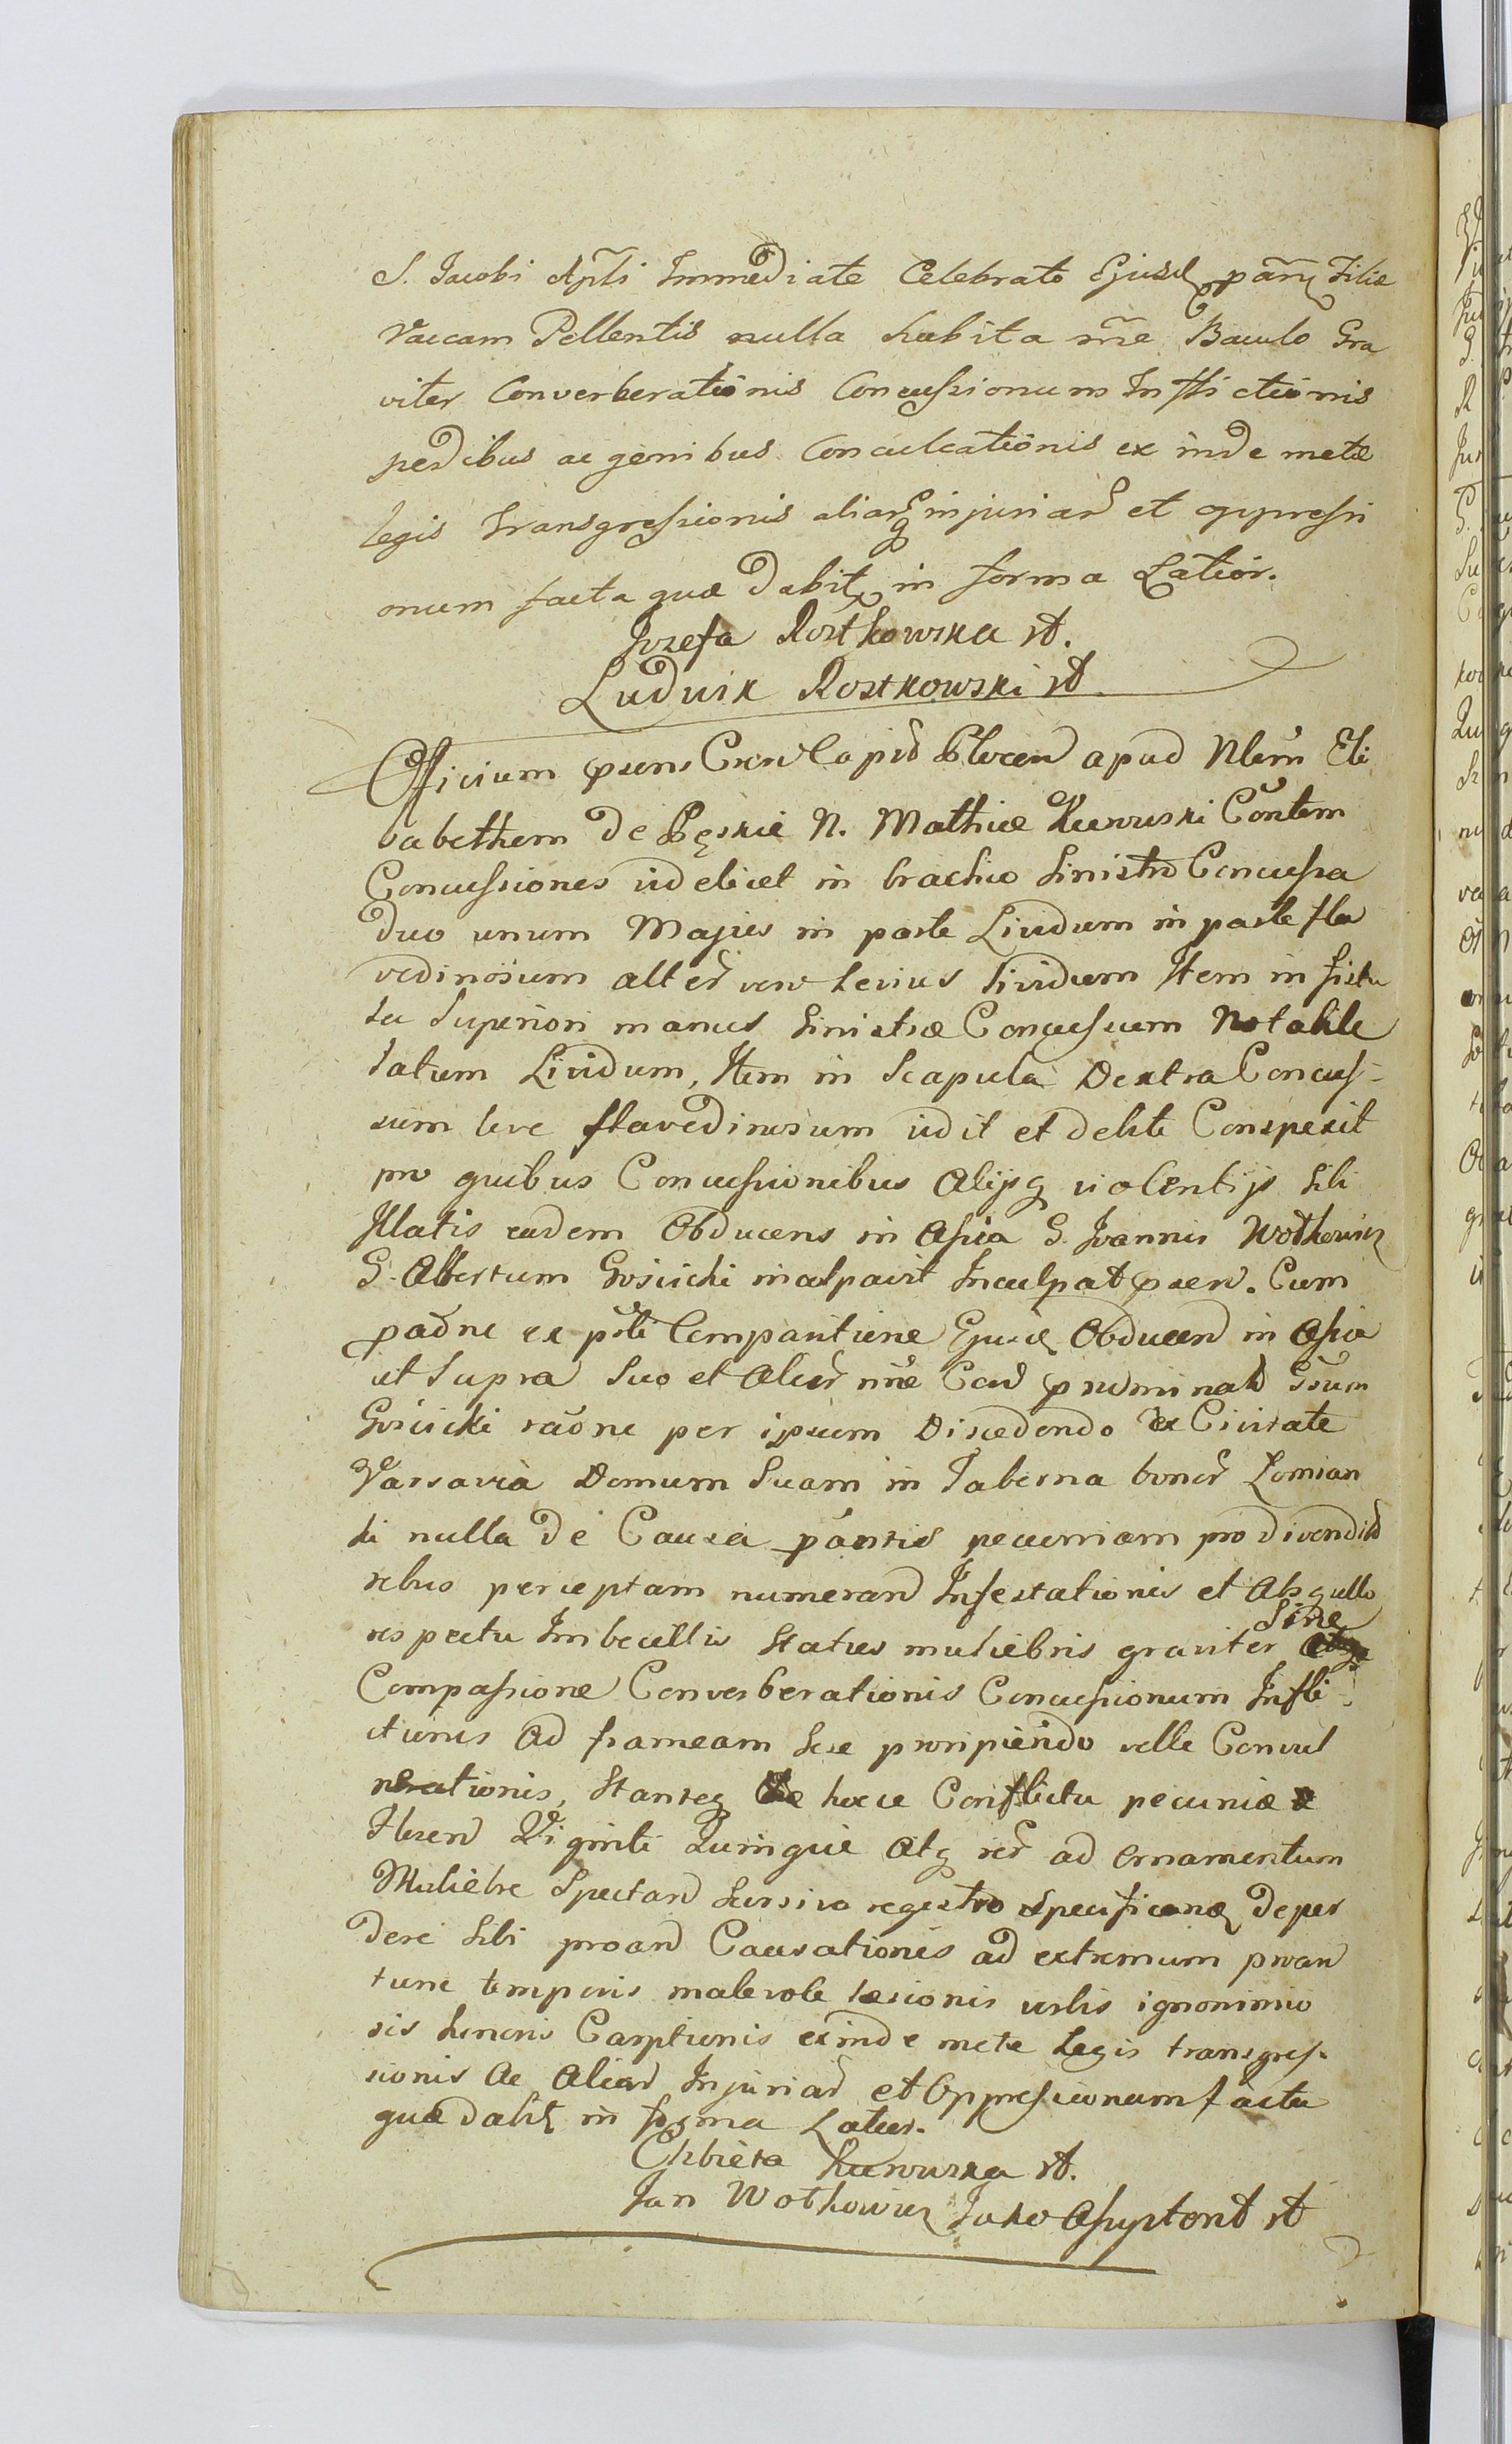 S. Jacobi Apli Immediate Celebrato Ejusd pany Filiæ
Vaccam Pellentis nulla habita rñe Baculo Gra
viter Converberationis Concussionum Inflictionis
pedibus ac genibus Conculcationis ex inde metæ
legis transgressionis aliarq injuriar et oppressi
onum facta quæ dabit in forma Latior.
Jozefa Rostkowska st.
Ludwik Rostkowski st
Officium præns Cren Capid Plocen apud Nlem Eli
sabethem de Bęskie N. Mathiæ Kunuski Contem
Concussiones videlicet in brachio Sinistro Concussa
duo unum Majus in parte Lividum in parte fla
vedinosum alter vero levius lividum Item in fistu
la Superiori manus Sinistræ Concussum Notabile
latum Lividum, Item in Scapula Dextra Concus-
sum leve flavedinosum vidit et debite Conspexit
pro quibus Concussionibus Alijsq violentijs sibi
Illatis eadem Obducens in Assia G. Joannis Wothowicz
G. Albertum Gościcki inculpavit Inculpat præn. Cum
paone ex pti Comparitione Ejusd Obducen in Assia
ut Supra Suo et Alior nñe Cord prænominat Gsum
Gościcki raõne per ipsum Discedendo ex Civitate
Varsavia Domum Suam in Taberna bonor Lomian
ki nulla de Causa pantis pecuniam pro divendit
rebus perceptam numeran Infestationis et Absq ullo
respectu Imbecillis Status muliebris graviter Sine
Compassione Converberationis Concussionum Infli-
ctionis Ad frameam Sese proripiendo velle Convul
nerationis, Stanteq hocce Conflictu pecuniæ
Floren Viginti Quinque Atq rer ad Ornamentum
Muliebre Spectan Seorsivo regestro Specifican deper
dere Sibi proan Causationis ad extremum proan
tunc temporis malevole læsionis verbis ignominio
sis honoris Carptionis exinde metæ Legis transgres-
sionis Ac Aliar Injuriar et Oppressionum facta
quæ dabit in forma Latior.
Elzbieta Kunuska st.
Jan Wothowicz Jako Assystent st